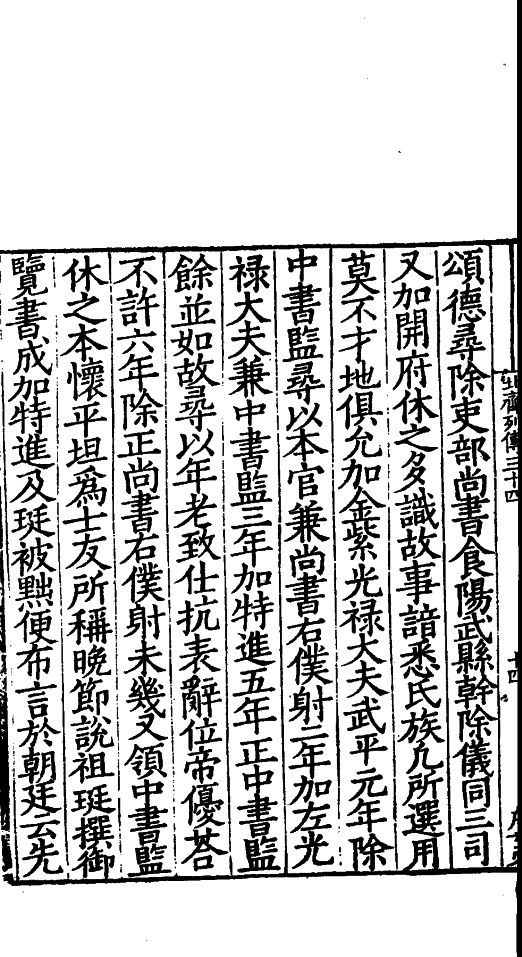 頌德尋除吏部尚書食陽武縣幹除儀同三司
又加開府休之多識故事諳悉氏族凡所選用
莫不才地俱允加金紫光禄大夫武平元年除
中書監尋以本官兼尚書右僕射二年加左光
禄大夫兼中書監三年加特進五年正中書監
餘並如故尋以年老致仕抗表辭位帝優荅
不許六年除正尚書右僕射未幾又領中書監
休之本懷平坦爲士友所稱晚節說祖珽撰御
覽書成加特進及珽被黜便布言於朝廷云先
北齊列傳三十四
十四